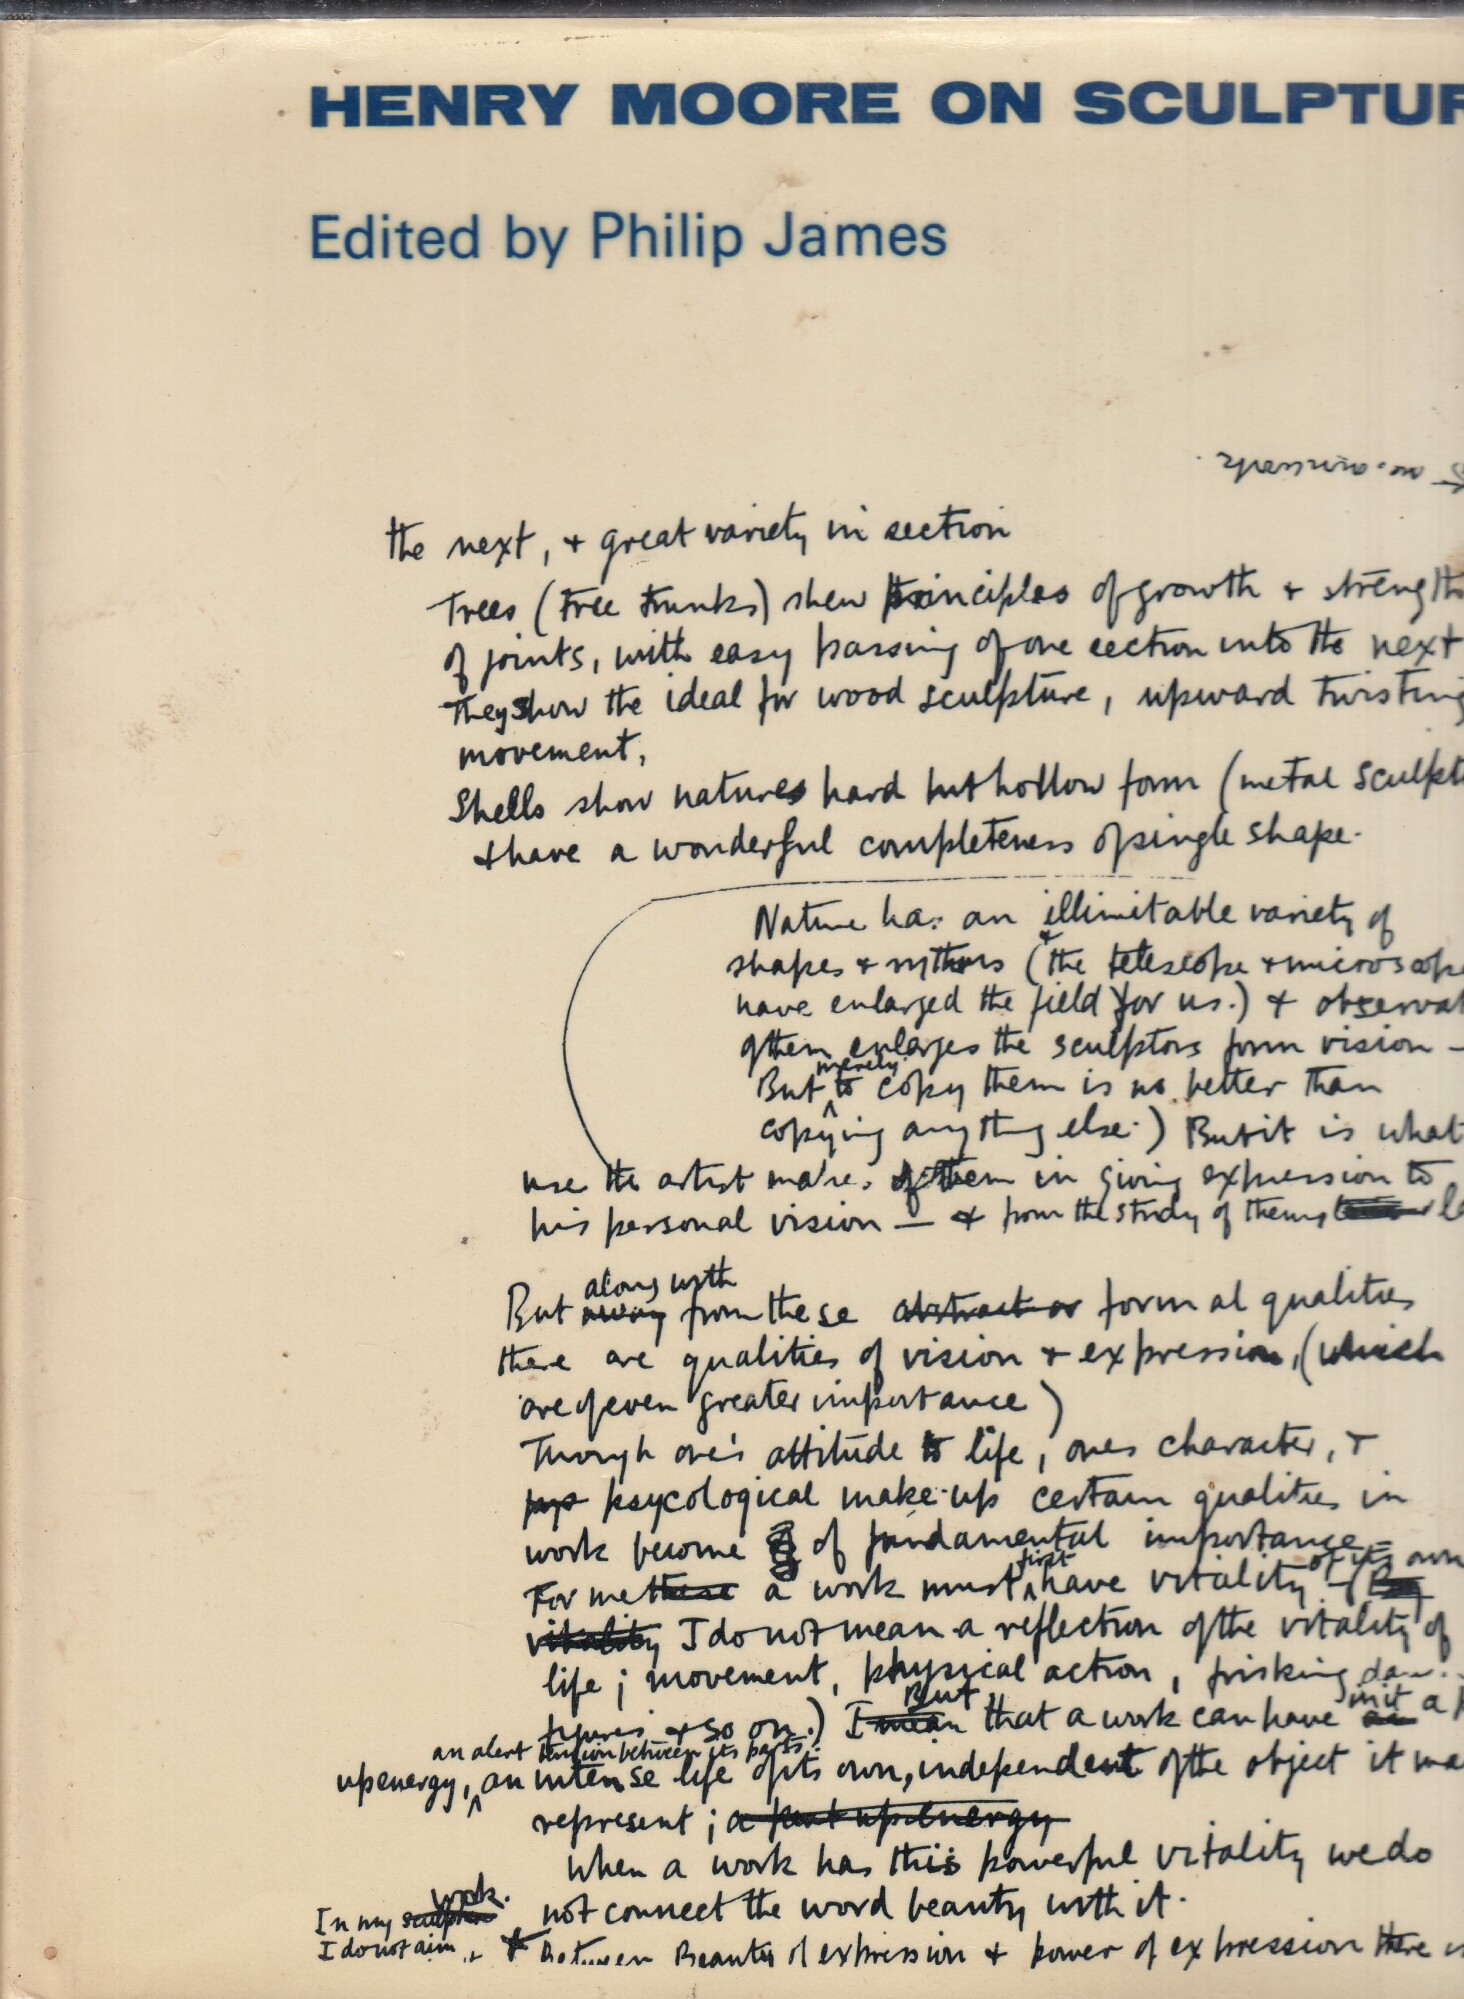 HENRY MOORE ON SCULPTUR
Edited by Philip James
the next, + great variety in section
Trees (tree trunks) shew principles of growth + strength
of joints, with easy passing of one section into the next
They show the ideal for wood sculpture, upward twisting
movement,
Shells show natures hard but hollow form (metal sculpt
+ have a wonderful completeness of single shape.
Nature has an illimitable variety of
shapes + rythms (the telescope + microscope
have enlarged the field for us.) + observat
of them enlarges the sculptors form vision –
merely
But to copy them is no better than
copying anything else.) But it is what
use the artist makes of them in giving expression to
his personal vision — + from the study of them
along with
But away from these abstract or formal qualities
there are qualities of vision + expression, (which
are of even greater importance)
Through one's attitude to life, ones character, +
psycological make-up certain qualities in
work become of fundamental importance
first of its own
For me these a work must have vitality
vitality I do not mean a reflection of the vitality of
life ; movement, physical action, frisking
But in it
figures + so on.) I mean that a work can have a
an alert tension between its parts.
up energy, an intense life of its own, independent of the object it ma
represent ; a pent up energy
when a work has this powerful vitality we do
not connect the word beauty with it.
work.
In my sculpture
I do not aim
Between Beauty of expression + power of expression there is